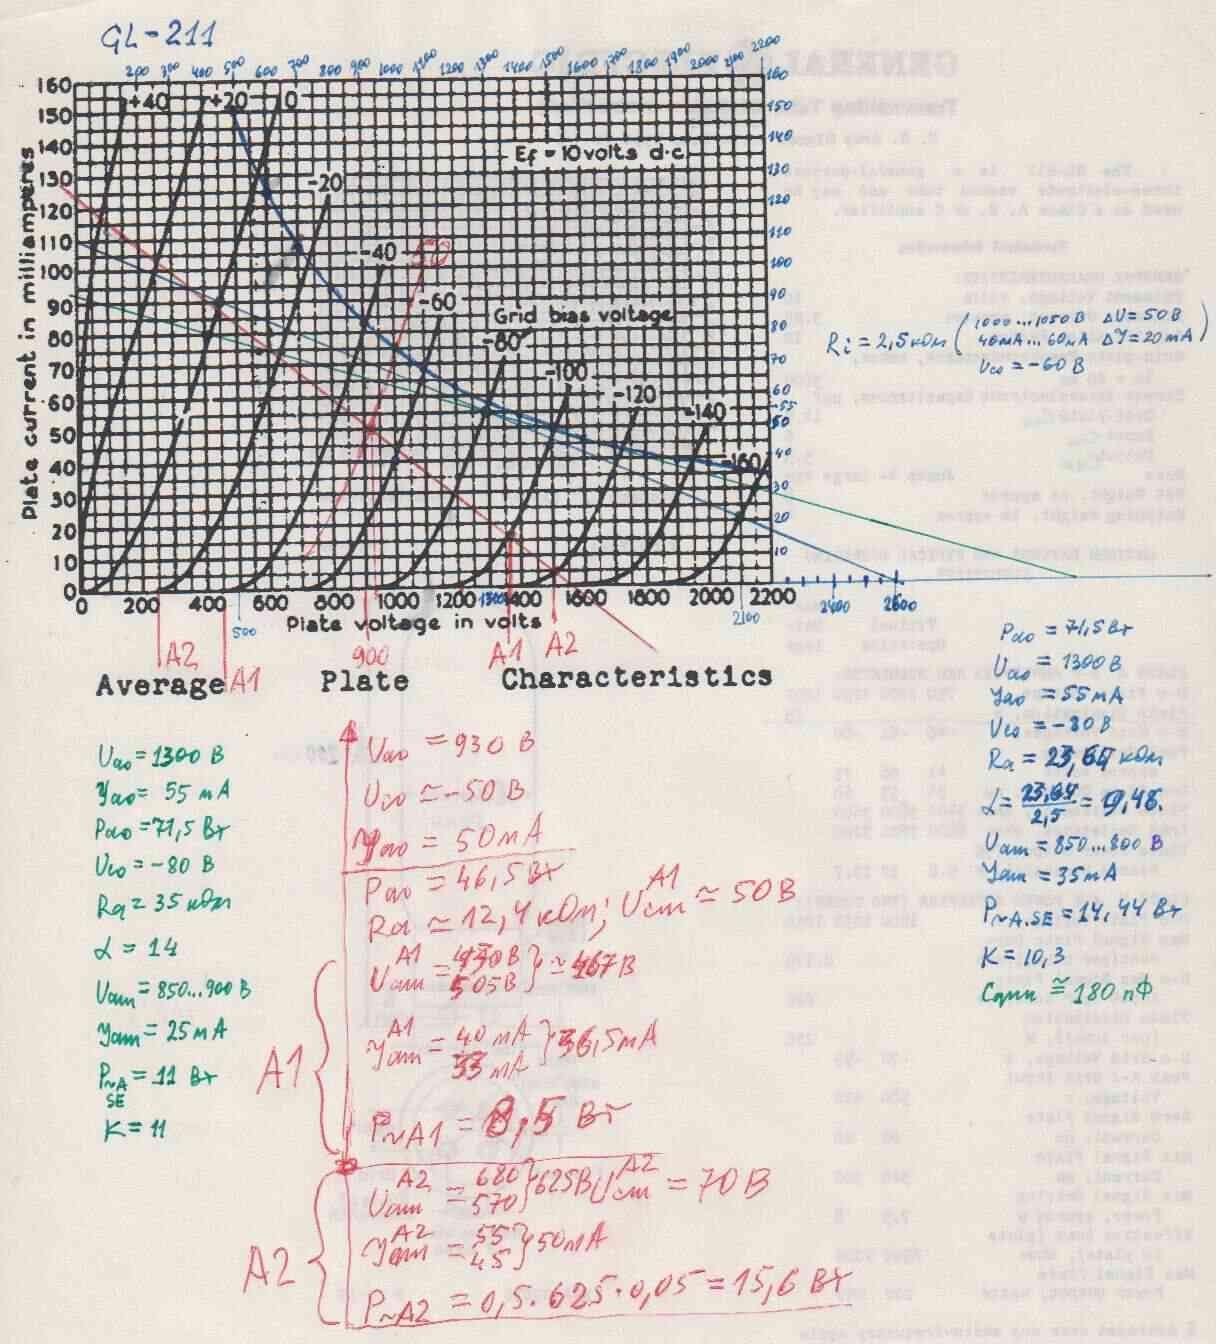 GL-211
200 300 400 500 600 700 800 900 1000 1100 1200 1300 1400 1500 1600 1700 1800 1900 2000 2100 2200
160
150
140
130
120
110
100
90
80
70
60
50
40
30
20
10
0
Plate current in milliamperes
+40 +20 0
Ef = 10 volts d·c·
-20
-40 -50
-60
Grid bias voltage
-80
-100
-120
-140
-160
160
150
140
130
120
110
100
90
80
70
60
55
50
40
30
20
10
0 200 400 600 800 1000 1200 1300 1400 1600 1800 2000 2200 2400 2600
500 2100
Plate voltage in volts
A2 A1 900 A1 A2
Average Plate Characteristics
Ri = 2,5 кОм (1000...1050 В ΔU = 50 В
40 mA...60 mA ΔJ = 20 mA)
Uco = -60 В
Uao = 1300 В
Jao = 55 mA
Pao = 71,5 Вт
Uco = -80 В
Ra = 35 кОм
α = 14
Uam = 850...900 В
Jam = 25 mA
P~A SE = 11 Вт
K = 11
Uao = 930 В
Uco ≃ -50 В
Jao = 50 mA
Pao = 46,5 Вт
Ra ≃ 12,4 кОм; Ucm A1 ≃ 50 В
A1
Uam A1 = 430 В
505 В } ≃ 467 В
Jam A1 = 40 mA
33 mA } 36,5 mA
P~A1 = 8,5 Вт
A2
Uam A2 = 680
570 } 625 В Ucm A2 = 70 В
Jam A2 = 55
45 } 50 mA
P~A2 = 0,5·625·0,05 = 15,6 Вт
Pao = 71,5 Вт
Uao = 1300 В
Jao = 55 mA
Uco = -80 В
Ra = 23,64 кОм
α = 23,64 / 2,5 = 9,46.
Uam = 850...800 В
Jam = 35 mA
P~A.SE = 14,44 Вт
K = 10,3
≅ 180 пФ